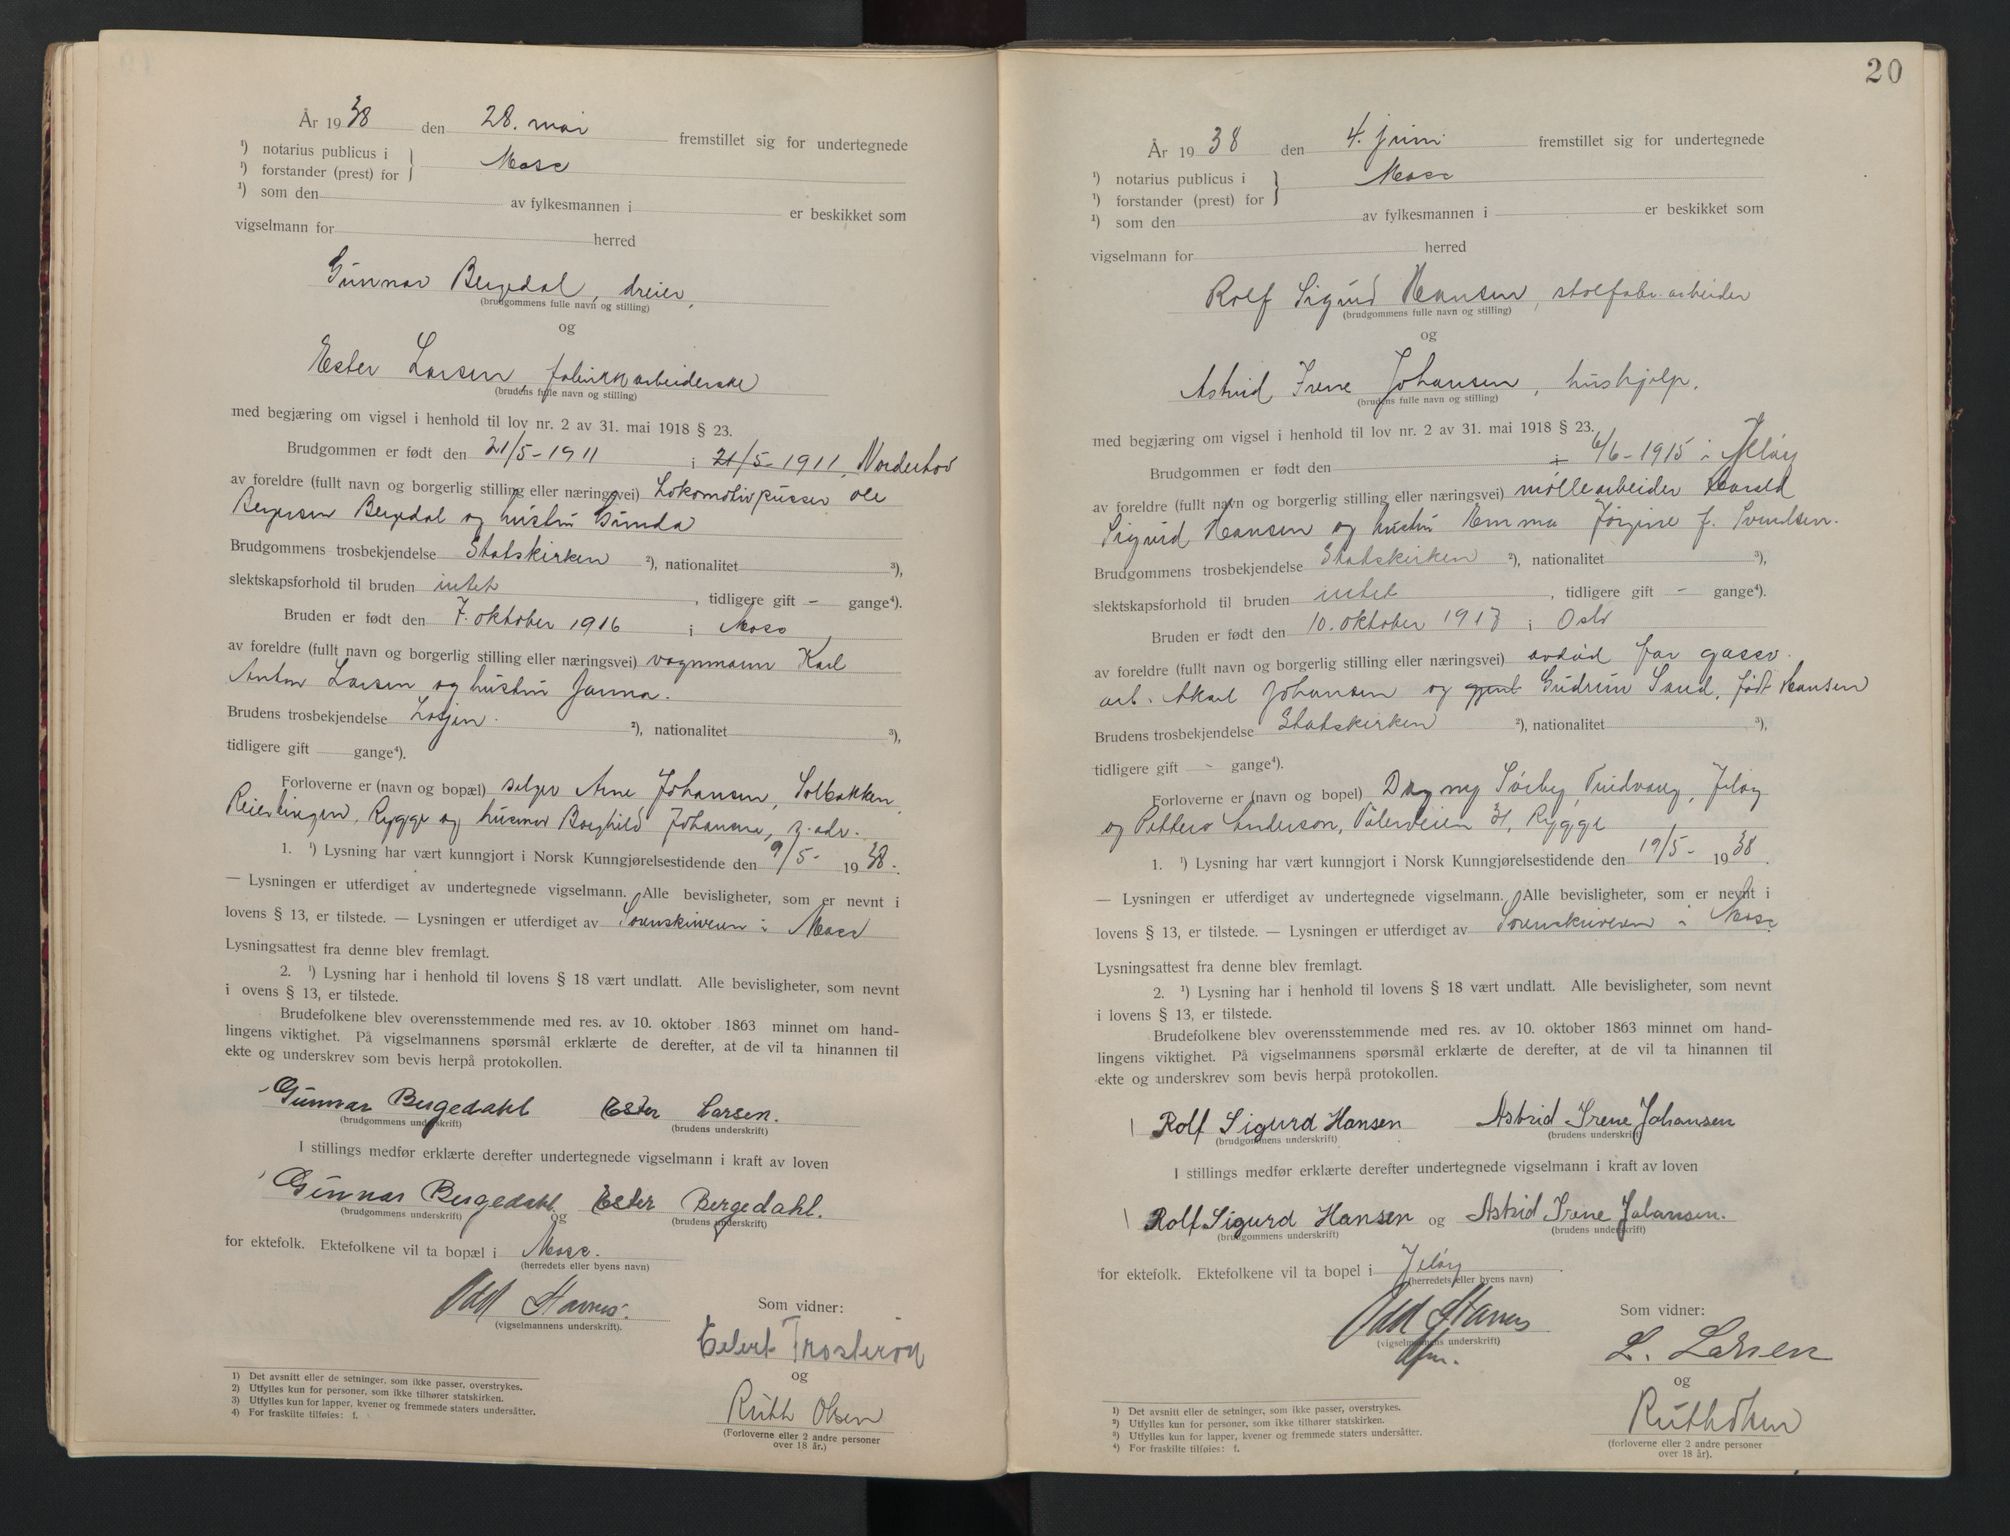 År 1938 den 28. mai fremstillet sig for undertegnede
¹) notarius publicus i Moss
¹) forstander (prest) for
¹) som den av fylkesmannen i er beskikket som
vigselmann for herred
Gunnar Bergedal, dreier,
(brudgommens fulle navn og stilling)
og
Ester Larsen, fabrikkarbeiderske
(brudens fulle navn og stilling)
med begjæring om vigsel i henhold til lov nr. 2 av 31. mai 1918 § 23.
Brudgommen er født den 21/5-1911 i 21/5-1911, Norderhov
av foreldre (fullt navn og borgerlig stilling eller næringsvei) Lokomotivpusser Ole
Bergersen Bergedal og hustru Gunda
Brudgommens trosbekjendelse Statskirken ²), nationalitet ³),
slektskapsforhold til bruden intet, tidligere gift – gange⁴).
Bruden er født den 7. oktober 1916 i Moss,
av foreldre (fullt navn og borgerlig stilling eller næringsvei) vognmann Karl
Anton Larsen og hustru Janna.
Brudens trosbekjendelse ²), nationalitet ³),
tidligere gift gange⁴).
Forloverne er (navn og bopæl) selger Arne Johansen, Solbakken,
Reierlingen, Rygge og husmor Borghild Johansen, s. adr.
1. ¹) Lysning har vært kunngjort i Norsk Kunngjørelsestidende den 9/5- 1938.
— Lysningen er utferdiget av undertegnede vigselmann. Alle bevisligheter, som er nevnt i
lovens § 13, er tilstede. — Lysningen er utferdiget av Sorenskriveren i Moss
Lysningsattest fra denne blev fremlagt.
2. ¹) Lysning har i henhold til lovens § 18 vært undlatt. Alle bevisligheter, som nevnt
i ovens § 13, er tilstede.
Brudefolkene blev overensstemmende med res. av 10. oktober 1863 minnet om hand-
lingens viktighet. På vigselmannens spørsmål erklærte de derefter, at de vil ta hinannen til
ekte og underskrev som bevis herpå protokollen.
Gunnar Bergedahl Ester Larsen.
(brudgommens underskrift) (brudens underskrift)
I stillings medfør erklærte derefter undertegnede vigselmann i kraft av loven
Gunnar Bergedahl og Ester Bergedahl.
(brudgommens underskrift) (brudens underskrift)
for ektefolk. Ektefolkene vil ta bopæl i Moss.
(herredets eller byens navn)
Odd Stavnes.
(vigselmannens underskrift).
Som vidner:
Eilert Trosterød
og
Ruth Olsen
(Forloverne eller 2 andre personer
over 18 år.)
1) Det avsnitt eller de setninger, som ikke passer, overstrykes.
2) Utfylles kun for personer, som ikke tilhører statskirken.
3) Utfylles kun for lapper, kvener og fremmede staters undersåtter.
4) For fraskilte tilføies: f.
20
År 1938 den 4. juni fremstillet sig for undertegnede
¹) notarius publicus i Moss
¹) forstander (prest) for
¹) som den av fylkesmannen i er beskikket som
vigselmann for herred
Rolf Sigurd Hansen, stolfabr. arbeider
(brudgommens fulle navn og stilling)
og
Astrid Irene Johansen, hushjelp.
(brudens fulle navn og stilling)
med begjæring om vigsel i henhold til lov nr. 2 av 31. mai 1918 § 23.
Brudgommen er født den i 6/6-1915 i Jeløy
av foreldre (fullt navn og borgerlig stilling eller næringsvei) møllearbeider Harald
Sigurd Hansen og hustru Emma Jørgine f. Svendsen.
Brudgommens trosbekjendelse Statskirken ²), nationalitet ³),
slektskapsforhold til bruden intet, tidligere gift – gange⁴).
Bruden er født den 10. oktober 1917 i Oslo
av foreldre (fullt navn og borgerlig stilling eller næringsvei) avdød far gassv.
arb. Aksel Johansen og Gudrun Sand, født Hansen
Brudens trosbekjendelse Statskirken ²), nationalitet ³),
tidligere gift - gange⁴).
Forloverne er (navn og bopel) Dagny Sørby, Jeløy
og Petters Anderson, Vålerveien 31, Rygge
1. ¹) Lysning har vært kunngjort i Norsk Kunngjørelsestidende den 19/5- 1938.
— Lysningen er utferdiget av undertegnede vigselmann. Alle bevisligheter, som er nevnt i
lovens § 13, er tilstede. — Lysningen er utferdiget av Sorenskriveren i Moss
Lysningsattest fra denne blev fremlagt.
2. ¹) Lysning har i henhold til lovens § 18 vært undlatt. Alle bevisligheter, som nevnt
i lovens § 13, er tilstede.
Brudefolkene blev overensstemmende med res. av 10. oktober 1863 minnet om hand-
lingens viktighet. På vigselmannens spørsmål erklærte de derefter, at de vil ta hinannen til
ekte og underskrev som bevis herpå protokollen.
Rolf Sigurd Hansen Astrid Irene Johansen
(brudgommens underskrift) (brudens underskrift)
I stillings medfør erklærte derefter undertegnede vigselmann i kraft av loven
Rolf Sigurd Hansen og Astrid Irene Johansen.
(brudgommens underskrift) (brudens underskrift)
for ektefolk. Ektefolkene vil ta bopel i Jeløy.
(herredets eller byens navn)
Odd Stavnes
(vigselmannens underskrift)
Som vidner:
L. Larsen
og
Ruth Olsen
(forloverne eller 2 andre personer
over 18 år).
¹) Det avsnitt eller de setninger, som ikke passer, overstrykes.
²) Utfylles kun for personer, som ikke tilhører statskirken.
³) Utfylles kun for lapper, kvener og fremmede staters undersåtter.
⁴) For fraskilte tilføies: f.